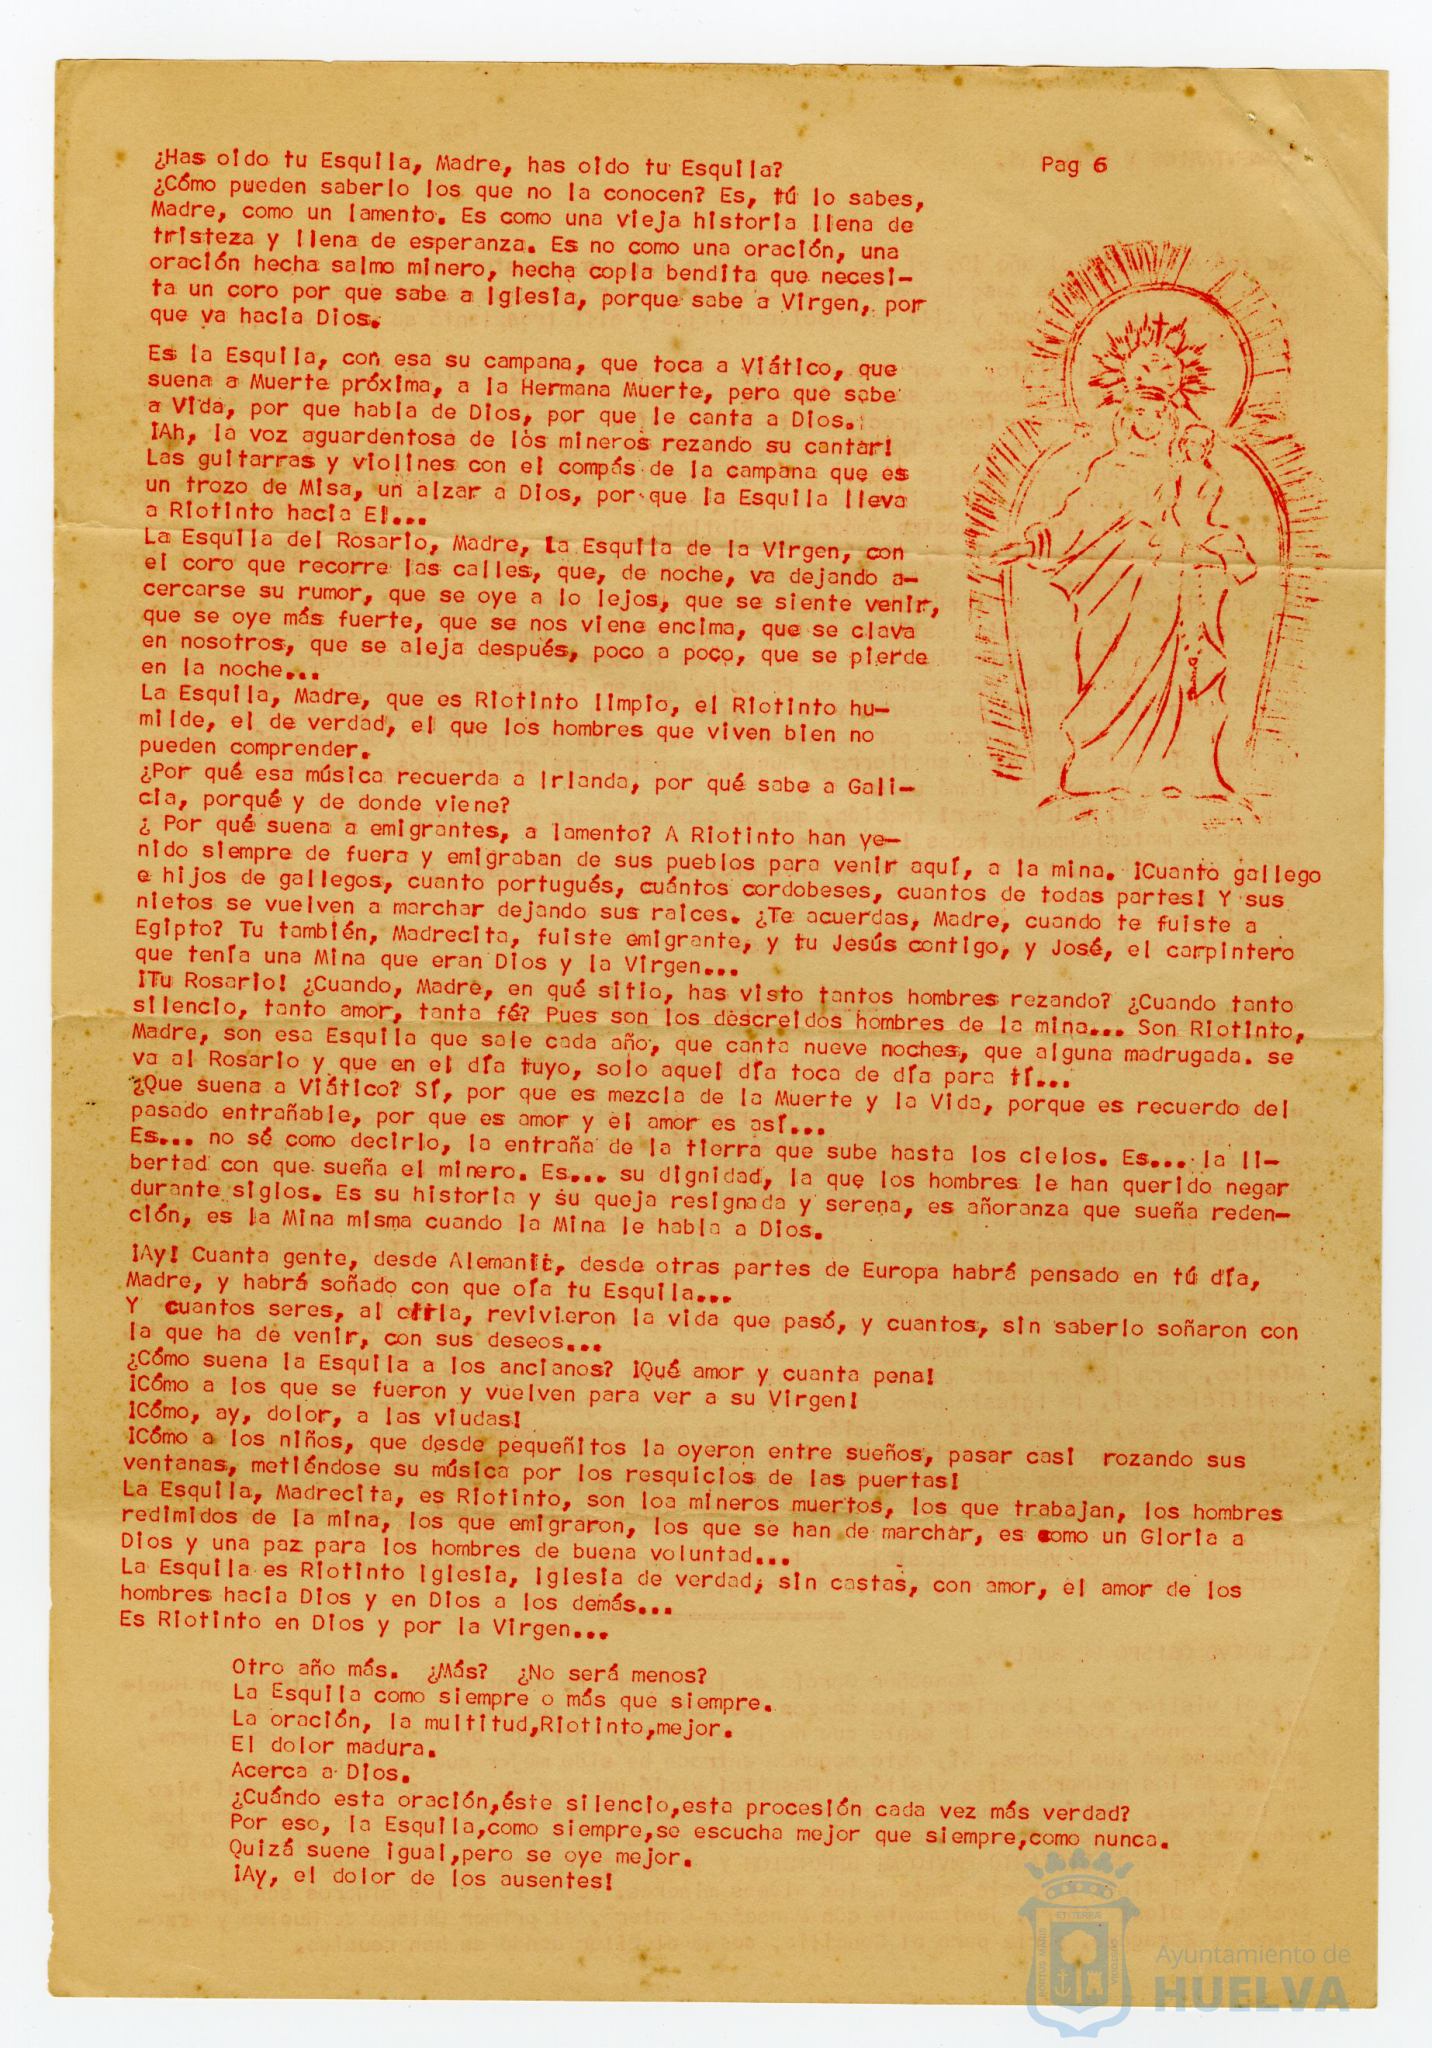 Pag 6
¿Has oido tu Esquila, Madre, has oido tu Esquila?
¿Cómo pueden saberlo los que no la conocen? Es, tú lo sabes,
Madre, como un lamento. Es como una vieja historia llena de
tristeza y llena de esperanza. Es no como una oración, una
oración hecha salmo minero, hecha copla bendita que necesi-
ta un coro por que sabe a Iglesia, porque sabe a Virgen, por
que va hacia Dios.
Es la Esquila, con esa su campana, que toca a Viático, que
suena a Muerte próxima, a la Hermana Muerte, pero que sabe
a Vida, por que habla de Dios, por que le canta a Dios.
¡Ah, la voz aguardentosa de los mineros rezando su cantar!
Las guitarras y violines con el compás de la campana que es
un trozo de Misa, un alzar a Dios, por que la Esquila lleva
a Riotinto hacia El...
La Esquila del Rosario, Madre, la Esquila de la Virgen, con
el coro que recorre las calles, que, de noche, va dejando a-
cercarse su rumor, que se oye a lo lejos, que se siente venir,
que se oye más fuerte, que se nos viene encima, que se clava
en nosotros, que se aleja después, poco a poco, que se pierde
en la noche...
La Esquila, Madre, que es Riotinto limpio, el Riotinto hu-
milde, el de verdad, el que los hombres que viven bien no
pueden comprender.
¿Por qué esa música recuerda a Irlanda, por qué sabe a Gali-
cia, porqué y de donde viene?
¿ Por qué suena a emigrantes, a lamento? A Riotinto han ve-
nido siempre de fuera y emigraban de sus pueblos para venir aquí, a la mina. ¡Cuanto gallego
e hijos de gallegos, cuanto portugués, cuántos cordobeses, cuantos de todas partes! Y sus
nietos se vuelven a marchar dejando sus raices. ¿Te acuerdas, Madre, cuando te fuiste a
Egipto? Tu también, Madrecita, fuiste emigrante, y tu Jesús contigo, y José, el carpintero
que tenía una Mina que eran Dios y la Virgen...
¡Tu Rosario! ¿Cuando, Madre, en qué sitio, has visto tantos hombres rezando? ¿Cuando tanto
silencio, tanto amor, tanta fé? Pues son los descreidos hombres de la mina... Son Riotinto,
Madre, son esa Esquila que sale cada año, que canta nueve noches, que alguna madrugada. se
va al Rosario y que en el día tuyo, solo aquel día toca de día para tí...
¿Que suena a Viático? Sí, por que es mezcla de la Muerte y la Vida, porque es recuerdo del
pasado entrañable, por que es amor y el amor es así...
Es... no sé como decirlo, la entraña de la tierra que sube hasta los cielos. Es... la li-
bertad con que sueña el minero. Es... su dignidad, la que los hombres le han querido negar
durante siglos. Es su historia y su queja resignada y serena, es añoranza que sueña reden-
ción, es la Mina misma cuando la Mina le habla a Dios.
¡Ay! Cuanta gente, desde Alemania, desde otras partes de Europa habrá pensado en tú día,
Madre, y habrá soñado con que oía tu Esquila...
Y cuantos seres, al oirla, revivieron la vida que pasó, y cuantos, sin saberlo soñaron con
la que ha de venir, con sus deseos...
¿Cómo suena la Esquila a los ancianos? ¡Qué amor y cuanta pena!
¡Cómo a los que se fueron y vuelven para ver a su Virgen!
¡Cómo, ay, dolor, a las viudas!
¡Cómo a los niños, que desde pequeñitos la oyeron entre sueños, pasar casi rozando sus
ventanas, metiéndose su música por los resquicios de las puertas!
La Esquila, Madrecita, es Riotinto, son loa mineros muertos, los que trabajan, los hombres
redimidos de la mina, los que emigraron, los que se han de marchar, es como un Gloria a
Dios y una paz para los hombres de buena voluntad...
La Esquila es Riotinto Iglesia, Iglesia de verdad, sin castas, con amor, el amor de los
hombres hacia Dios y en Dios a los demás...
Es Riotinto en Dios y por la Virgen...
Otro año más. ¿Más? ¿No será menos?
La Esquila como siempre o más que siempre.
La oración, la multitud,Riotinto,mejor.
El dolor madura.
Acerca a Dios.
¿Cuándo esta oración,éste silencio,esta procesión cada vez más verdad?
Por eso, la Esquila,como siempre,se escucha mejor que siempre,como nunca.
Quizá suene igual,pero se oye mejor.
¡Ay, el dolor de los ausentes!
Ayuntamiento de
HUELVA